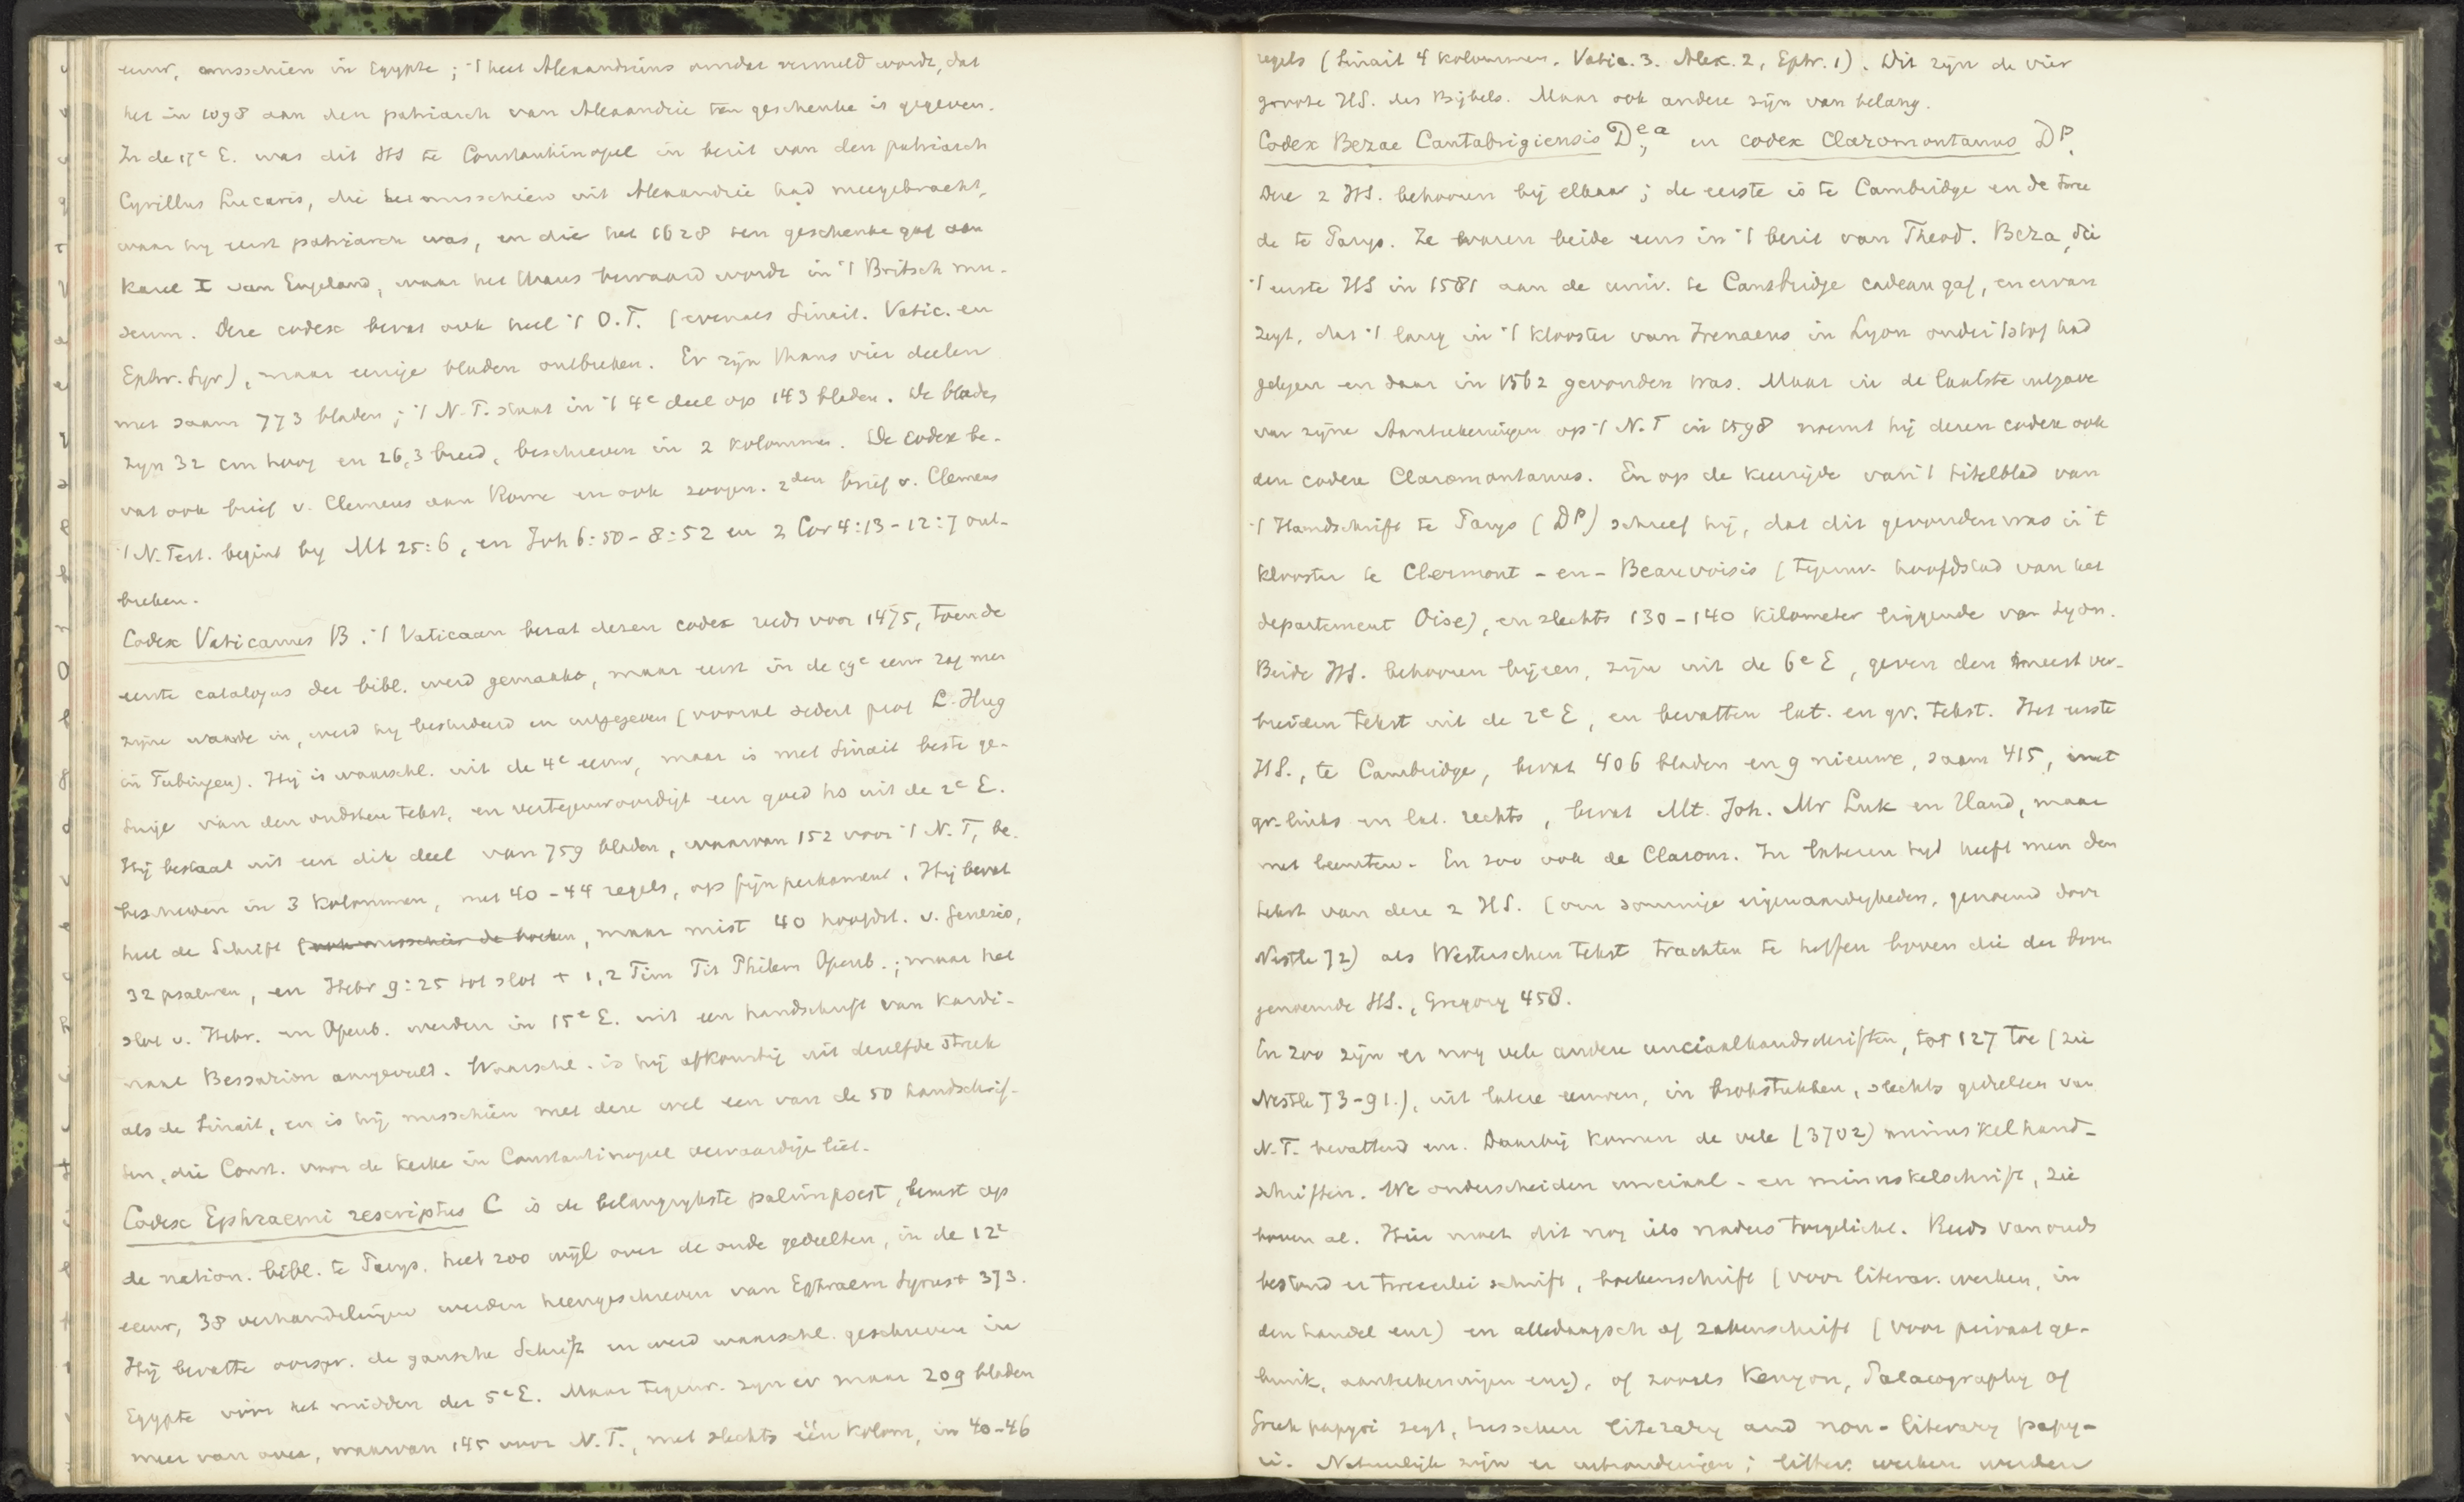 eeuw, misschien in Egypte; 't heet Alexandrinus omdat vermeld wordt, dat
het in 1098 aan den patriarch van Alexandrië ten geschenke is gegeven.
In de 17e E. was dit HS te Constantinopel in bezit van den patriarch
Cyrillus Lucaris, die het misschien uit Alexandrië had meegebracht,
waar hij eerst patriarch was, en die het 1628 ten geschenke gaf aan
Karel I van Engeland, waar het thans bewaard wordt in 't Britsch mu-
seum. Deze codex bevat ook heel 't O.T. (evenals Sinait. Vatic. en
Ephr. Syr), maar eenige bladen ontbreken. Er zijn thans vier deelen
met saam 773 bladen; 't N.T. staat in 't 4e deel op 143 bladen. De blades
zijn 32 cm hoog en 26,3 breed, beschreven in 2 kolommen. De codex be-
vat ook brief v. Clemens aan Rome en ook zoogen. 2den brief v. Clemens
't N. Test. begint bij Mt 25:6, en Joh 6:50-8:52 en 2 Cor 4:13-12:7 ont-
breken.
Codex Vaticanus B. 't Vaticaan bezat dezen codex reeds voor 1475, toen de
eerste catalogus der bibl. werd gemaakt, maar eerst in de 19e eeuw zag men
zijne waarde in, werd hij bestudeerd en uitgegeven (vooral sedert prof L. Hug
in Tubingen). Hij is waarschl. uit de 4e eeuw, maar is met Sinait beste ge-
tuige van den oudsten tekst, en vertegenwoordigt een goed hs uit de 2e E.
Hij bestaat uit een dik deel van 759 bladen, waarvan 152 voor 't N.T, be-
schreven in 3 kolommen, met 40-44 regels, op fijn perkament. Hij bevat
heel de Schrift (ook misschien de boeken, maar mist 40 hoofdst. v. Genesis,
32 psalmen, en Hebr 9:25 tot slot + 1,2 Tim Tit Philem Openb.; maar het
slot v. Hebr. en Openb. werden in 15e E. uit een handschrift van Kardi-
naal Bessarion aangevuld. Waarschl. is hij afkomstig uit dezelfde streek
als de Sinait, en is hij misschien met deze wel een van de 50 handschrif-
ten, die Const. voor de kerke in Constantinopel vervaardige liet.
Codex Ephraemi rescriptus C is de belangrijkste palimpsest, berust op
de nation. bibl. te Parijs, heet zoo wijl over de oude gedeelten, in de 12e
eeuw, 38 verhandelingen werden heengeschreven van Ephraem Syrus + 373.
Hij bevatte oorspr. de gansche Schrift en werd waarschl. geschreven in
Egypte vóór het midden der 5e E. Maar tegenw. zijn er maar 209 bladen
meer van over, waarvan 145 voor N.T., met slechts één kolom, in 40-46
regels (Sinait 4 kolommen, Vatic. 3. Alex. 2, Ephr. 1). Dit zijn de vier
groote HS. des Bijbels. Maar ook andere zijn van belang.
Codex Bezae Cantabrigiensis D e,a en codex Claromontanus D p.
Deze 2 HS. behooren bij elkaar; de eerste is te Cambridge en de twee
de te Parijs. Ze waren beide eens in 't bezit van Theod. Beza, die
't eerste HS in 1581 aan de univ. te Cambridge cadeau gaf, en ervan
zegt, dat 't lang in 't klooster van Irenaeus in Lyon onder 't stof had
gelegen en daar in 1562 gevonden was. Maar in de laatste uitgave
van zijne Aanteekeningen op 't N.T in 1598 noemt hij dezen codex ook
den codex Claromontanus. En op de keerzijde van 't titelblad van
't Handschrift te Parijs (D p) schreef hij, dat dit gevonden was in 't
klooster te Clermont-en-Beauvoisis (tegenw. hoofdstad van het
departement Oise), en slechts 130-140 kilometer liggende van Lyon.
Beide HS. behooren bijeen, zijn uit de 6e E, geven den meest ver-
breiden tekst uit de 2e E, en bevatten lat. en gr. tekst. Het eerste
HS., te Cambridge, bevat 406 bladen en 9 nieuwe, saam 415, met
gr. links en lat. rechts, bevat Mt. Joh. Mr Luk en Hand, maar
met leemten. En zoo ook de Clarom. In lateren tijd heeft men den
tekst van deze 2 HS. (om sommige eigenaardigheden, genoemd door
Nestle 72) als Westerschen tekst trachten te heffen boven die der boven
genoemde HS., Gregory 458.
En zoo zijn er nog vele andere unciaalhandschriften, tot 127 toe (zie
Nestle 73-91.), uit latere eeuwen, in brokstukken, slechts gedeelten van
N.T. bevattend enz. Daarbij komen de vele (3702) minuskelhand-
schriften. We onderscheiden unciaal- en minuskelschrift, zie
boven al. Hier moet dit nog iets nader toegelicht. Reeds van ouds
bestond er tweeerlei schrift, boekenschrift (voor literar. werken, in
den handel enz) en alledaagsch of zakenschrift (voor privaat ge-
bruik, aanteekeningen enz), of zooals Kenyon, Palaeography of
Greek papyri zegt, tusschen literary and non-literary papy-
ri. Natuurlijk zijn er uitzonderingen; litter. werken werden